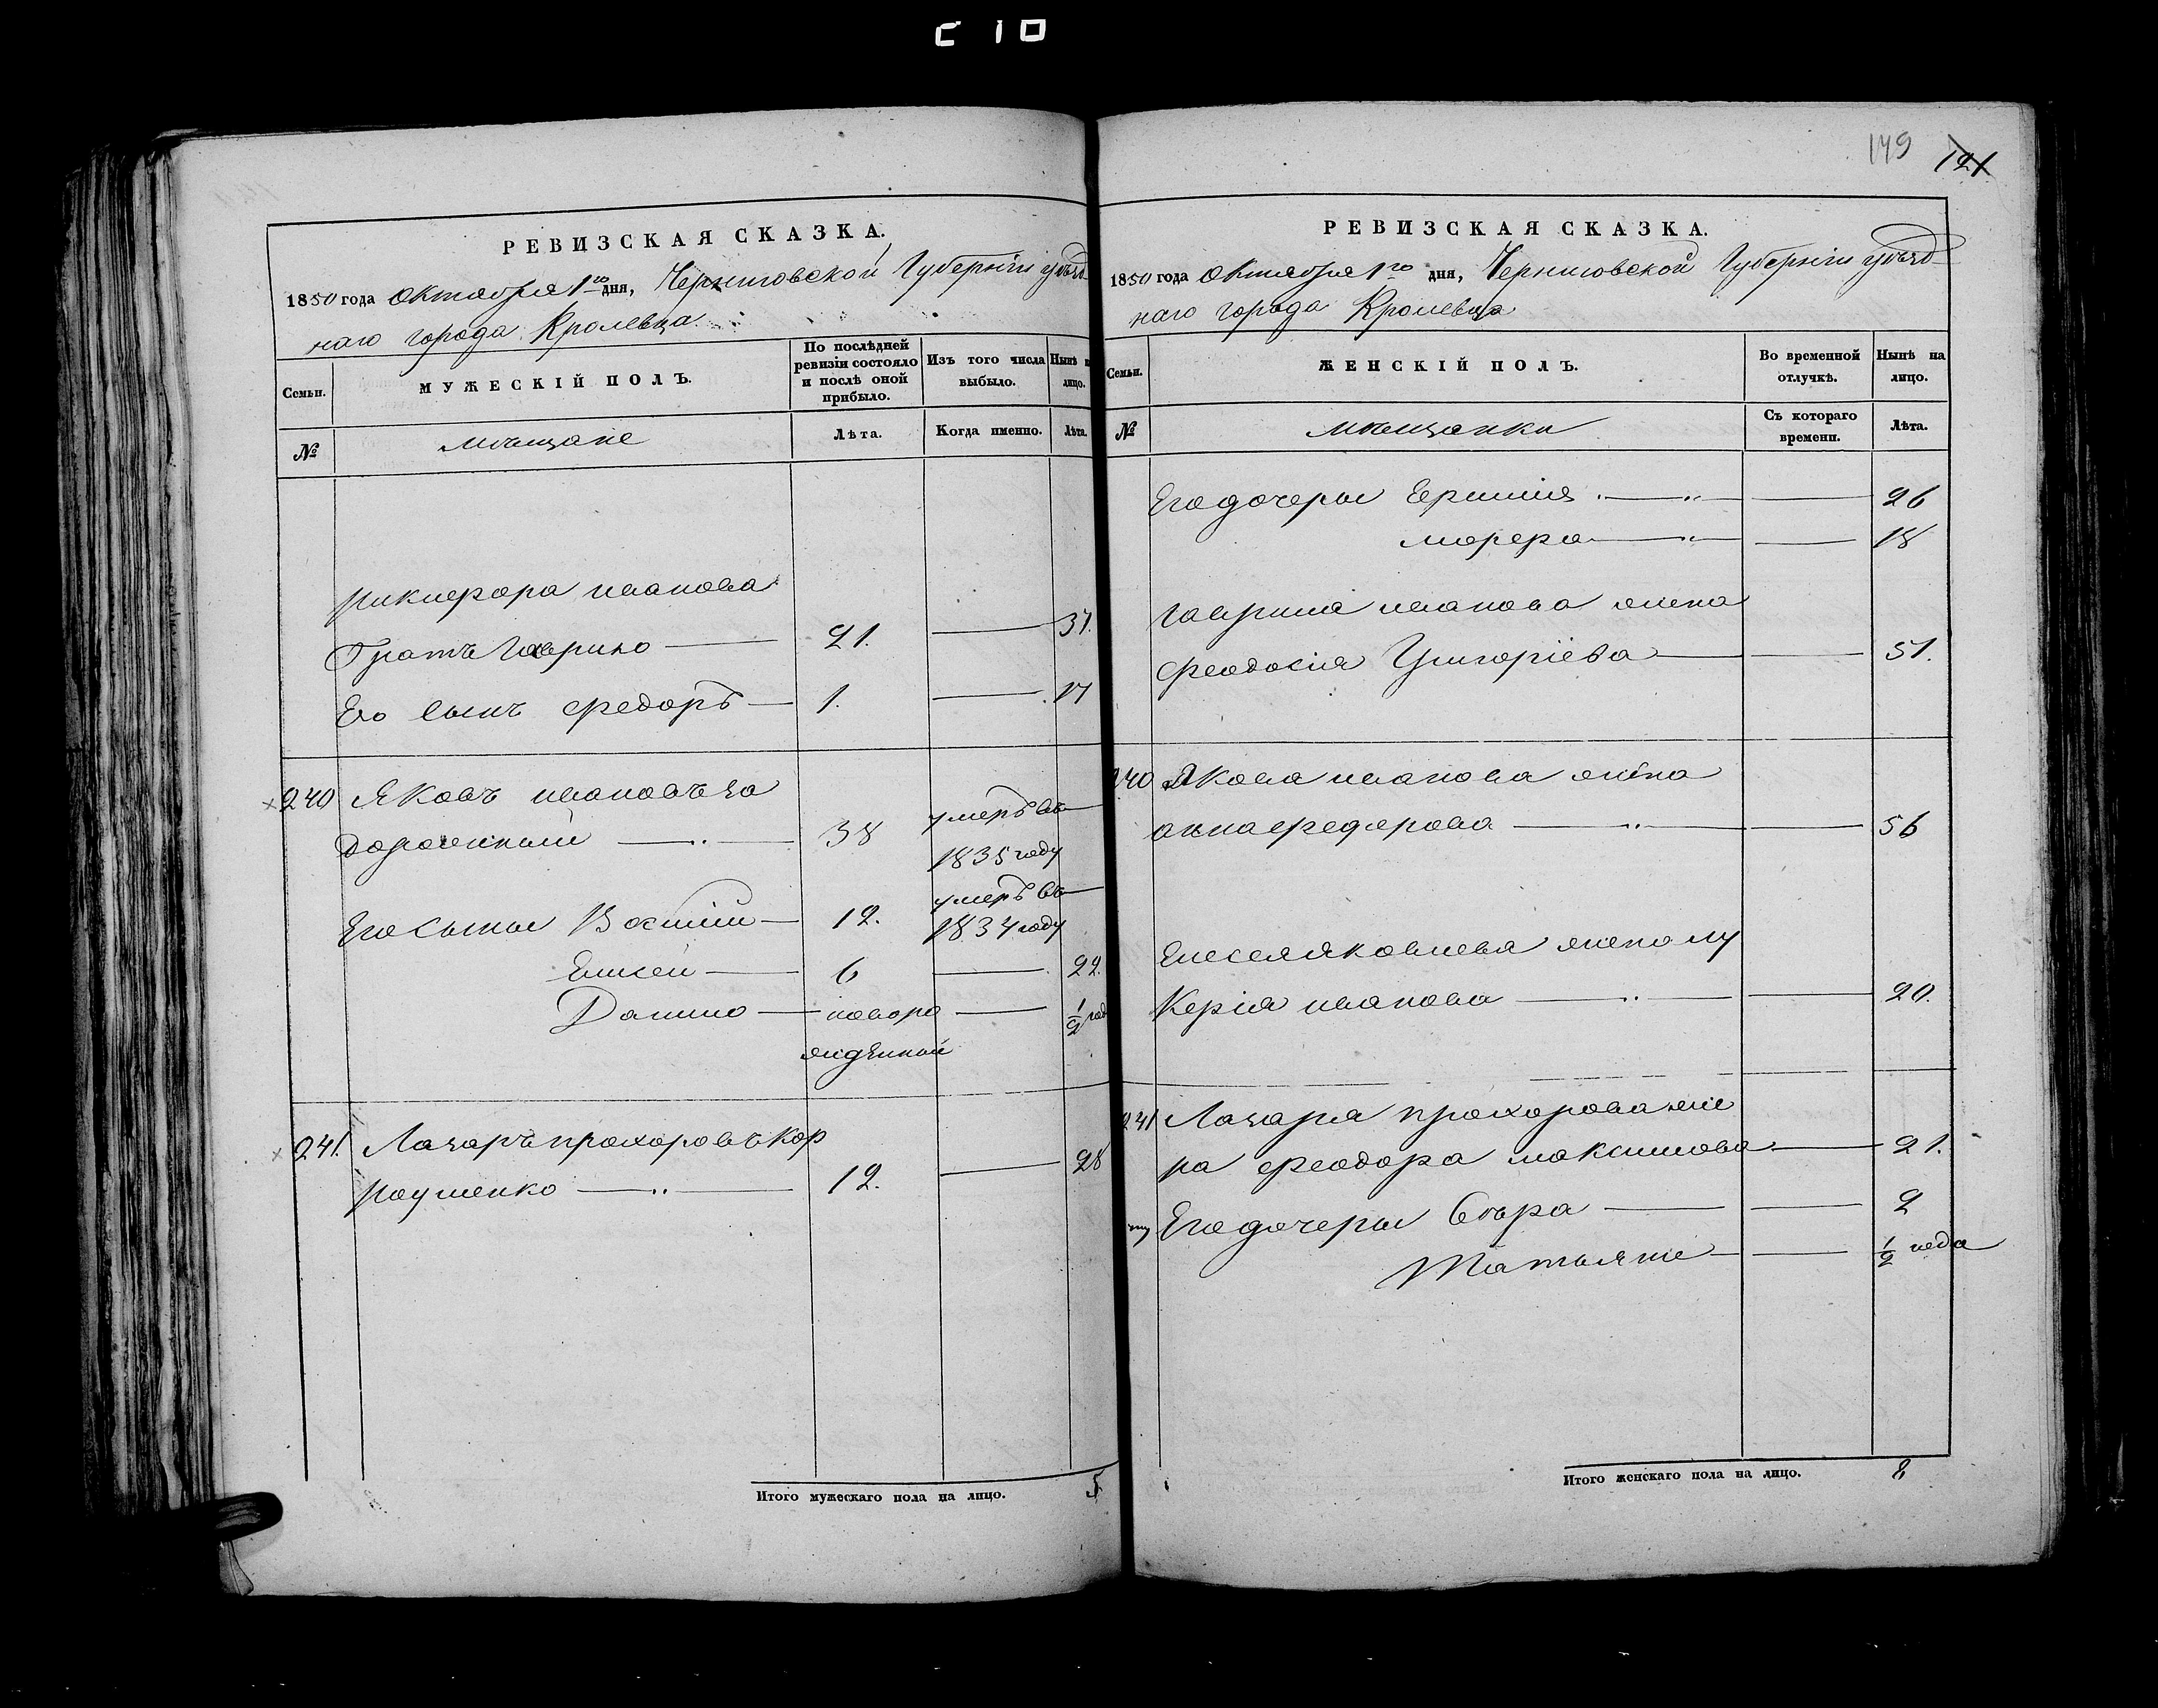 С 10
РЕВИЗСКАЯ СКАЗКА.
1850 года Октября 1го дня, Черниговской Губернiи уѣзд
наго города Кролевца
Семьи.
МУЖЕСКIЙ ПОЛЪ.
По послѣдней
ревизiи состояло
и послѣ оной
прибыло.
Изъ того числа
выбыло.
Нынѣ н
лицо.
№
мѣщане
Лѣта.
Когда именно.
Лѣта.
Никифора иванова
братъ Гаврило 21. 37.
Его сынъ федоръ 1. 17
240 Яковъ ивановъ за
дорожный 38 умеръ въ
1835 году
Его сыны Василiй 12. умеръ въ
1834 году
Елисей 6 22.
Данило новоро 1/2 год
жденный
241. Лазаръ прохоровъ Кор
12. 28
Итого мужескаго пола на лицо. 5
149 121
РЕВИЗСКАЯ СКАЗКА.
1850 года Октября 1го дня, Черниговской Губернiи уѣзд
наго города Кролевца
Семьи.
ЖЕНСКIЙ ПОЛЪ.
Во временной
отлучкѣ.
Нынѣ на
лицо.
№
мѣщанки
Съ котораго
времени.
Лѣта.
Его дочеры 26
18
гаврила иванова жена
феодосiя Григорiева 51.
240 Якова иванова жена
анна федорова 56
Елесея яковлева жена лу
керiя иванова 20.
241 Лазаря прохорова же
на феодора максимова 21.
Его дочеры Вѣра 2
Татьяна 1/2 года
Итого женскаго пола на лицо. 8